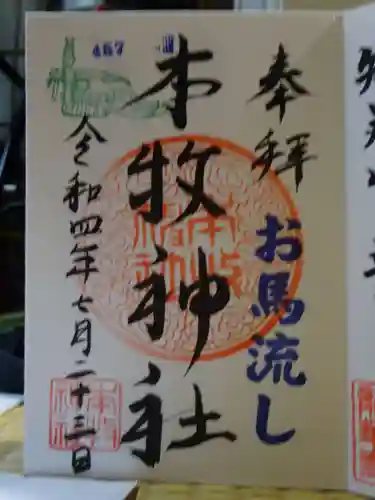 奉拝
お馬流し
本牧神社
令和四年七月二十三日
457